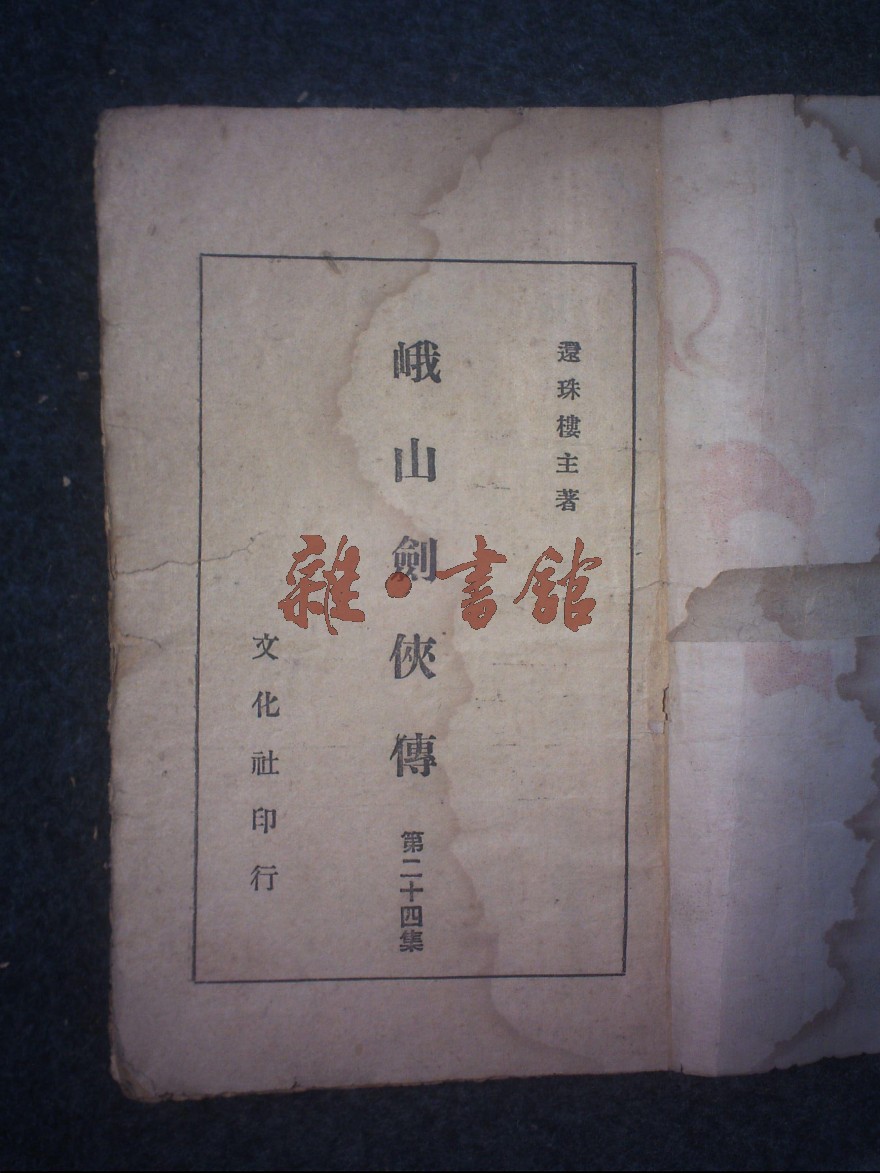 還珠樓主著
峨山劍俠傳
第二十四集
文化社印行
雜·書館